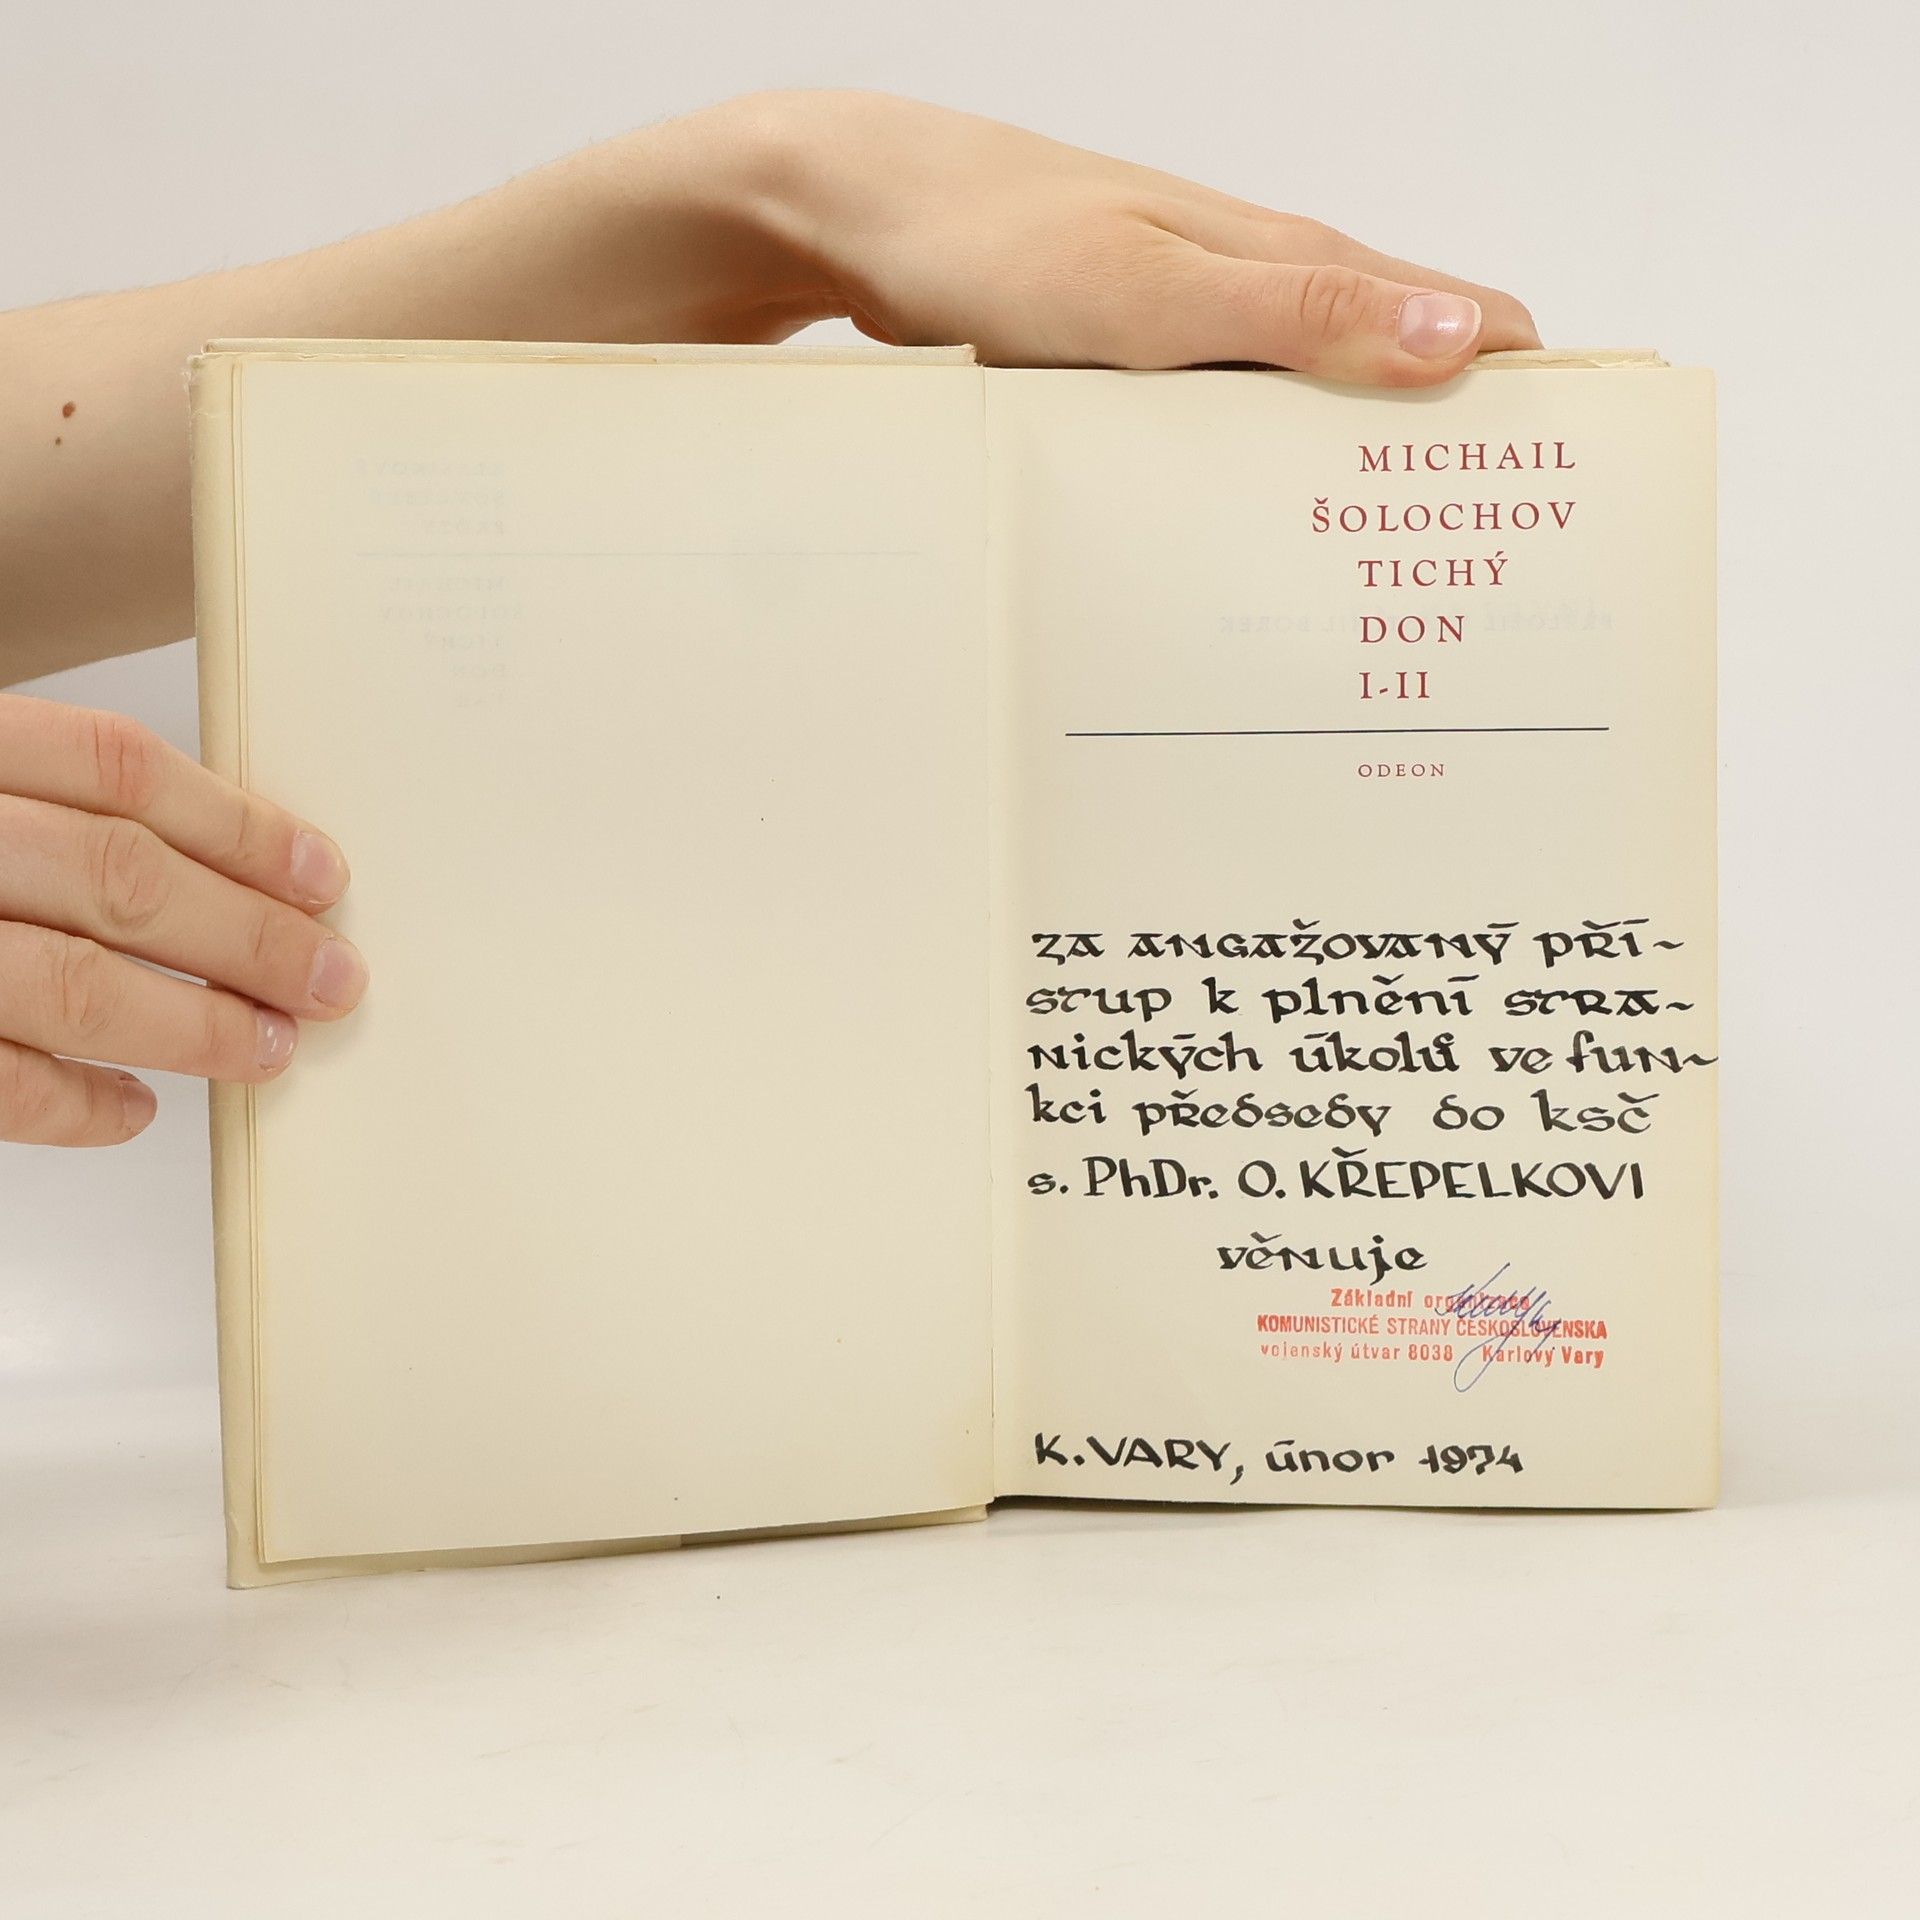 MICHAIL
ŠOLOCHOV
TICHÝ
DON
I-II
ODEON
za angažovaný pří~
stup k plnění stra~
nických úkolů ve fun~
kci předsedy do ksč
s. PhDr. O. KŘEPELKOVI
věnuje
Základní organizace
KOMUNISTICKÉ STRANY ČESKOSLOVENSKA
vojenský útvar 8038 Karlovy Vary
K. VARY, únor 1974